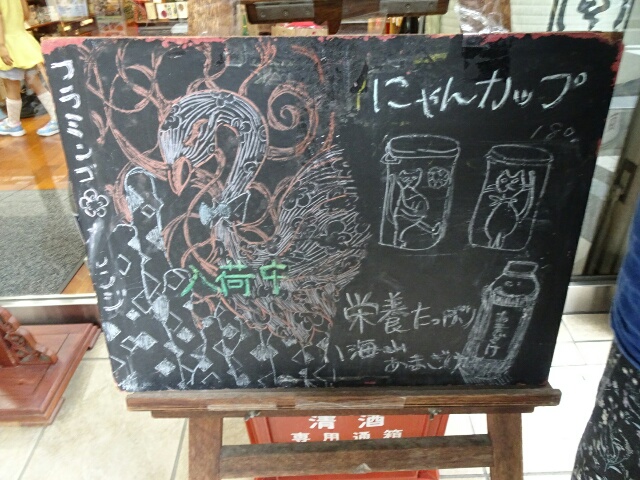 フラミンゴ
入荷中
にゃんカップ
180
栄養たっぷり
八海山
あまざけ
あまざけ
清酒
専用通箱